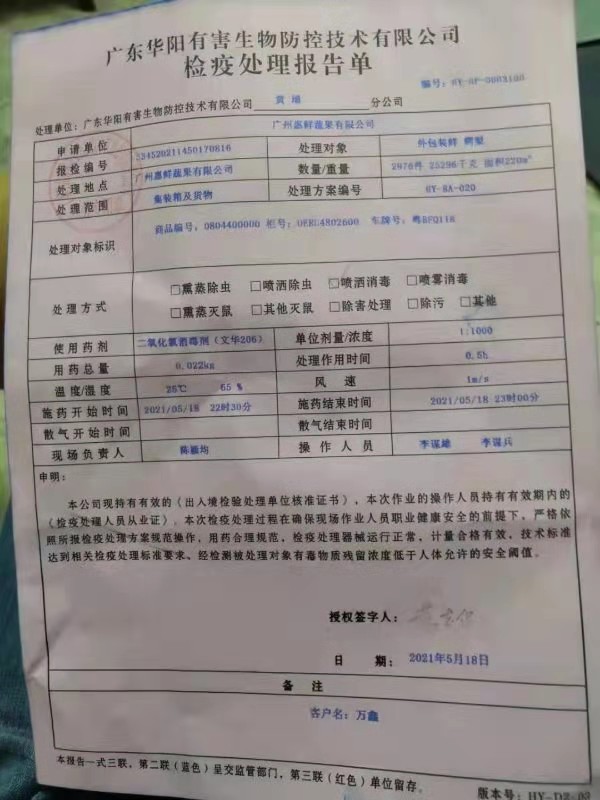 广东华阳有害生物防控技术有限公司
检疫处理报告单
编号：HY-GP-0003100
处理单位：广东华阳有害生物防控技术有限公司 黄埔 分公司
申请单位 广州惠鲜蔬果有限公司
报检编号 534520211450170816 处理对象 外包装鲜榴梿
处理地点 广州惠鲜蔬果有限公司 数量/重量 2976件 25296千克 面积220m²
处理范围 集装箱及货物 处理方案编号 HY-SA-020
处理对象标识 商品编号：0804400000 柜号：OERU4802600 车牌号：粤BFQ118
处理方式 □熏蒸除虫 □喷洒除虫 □喷洒消毒 □喷雾消毒
□熏蒸灭鼠 □其他灭鼠 □除害处理 □除污 □其他
使用药剂 二氧化氯消毒剂（文华206） 单位剂量/浓度 1:1000
用药总量 0.022kg 处理作用时间 0.5h
温度/湿度 28℃ 65 % 风 速 1m/s
施药开始时间 2021/05/18 22时30分 施药结束时间 2021/05/18 23时00分
散气开始时间 散气结束时间
现场负责人 操作人员 李谋雄 李谋兵
申明：
本公司现持有有效的《出入境检验处理单位核准证书》，本次作业的操作人员持有有效期内的
《检疫处理人员从业证》。本次检疫处理过程在确保现场作业人员职业健康安全的前提下，严格依
照所报检疫处理方案规范操作，用药合理规范，检疫处理器械运行正常，计量合格有效，技术标准
达到相关检疫处理标准要求、经检测被处理对象有毒物质残留浓度低于人体允许的安全阈值。
授权签字人：
日 期： 2021年5月18日
备 注
客户名：万鑫
本报告一式三联，第二联（蓝色）呈交监管部门，第三联（红色）单位留存。
版本号：HY-D2-03